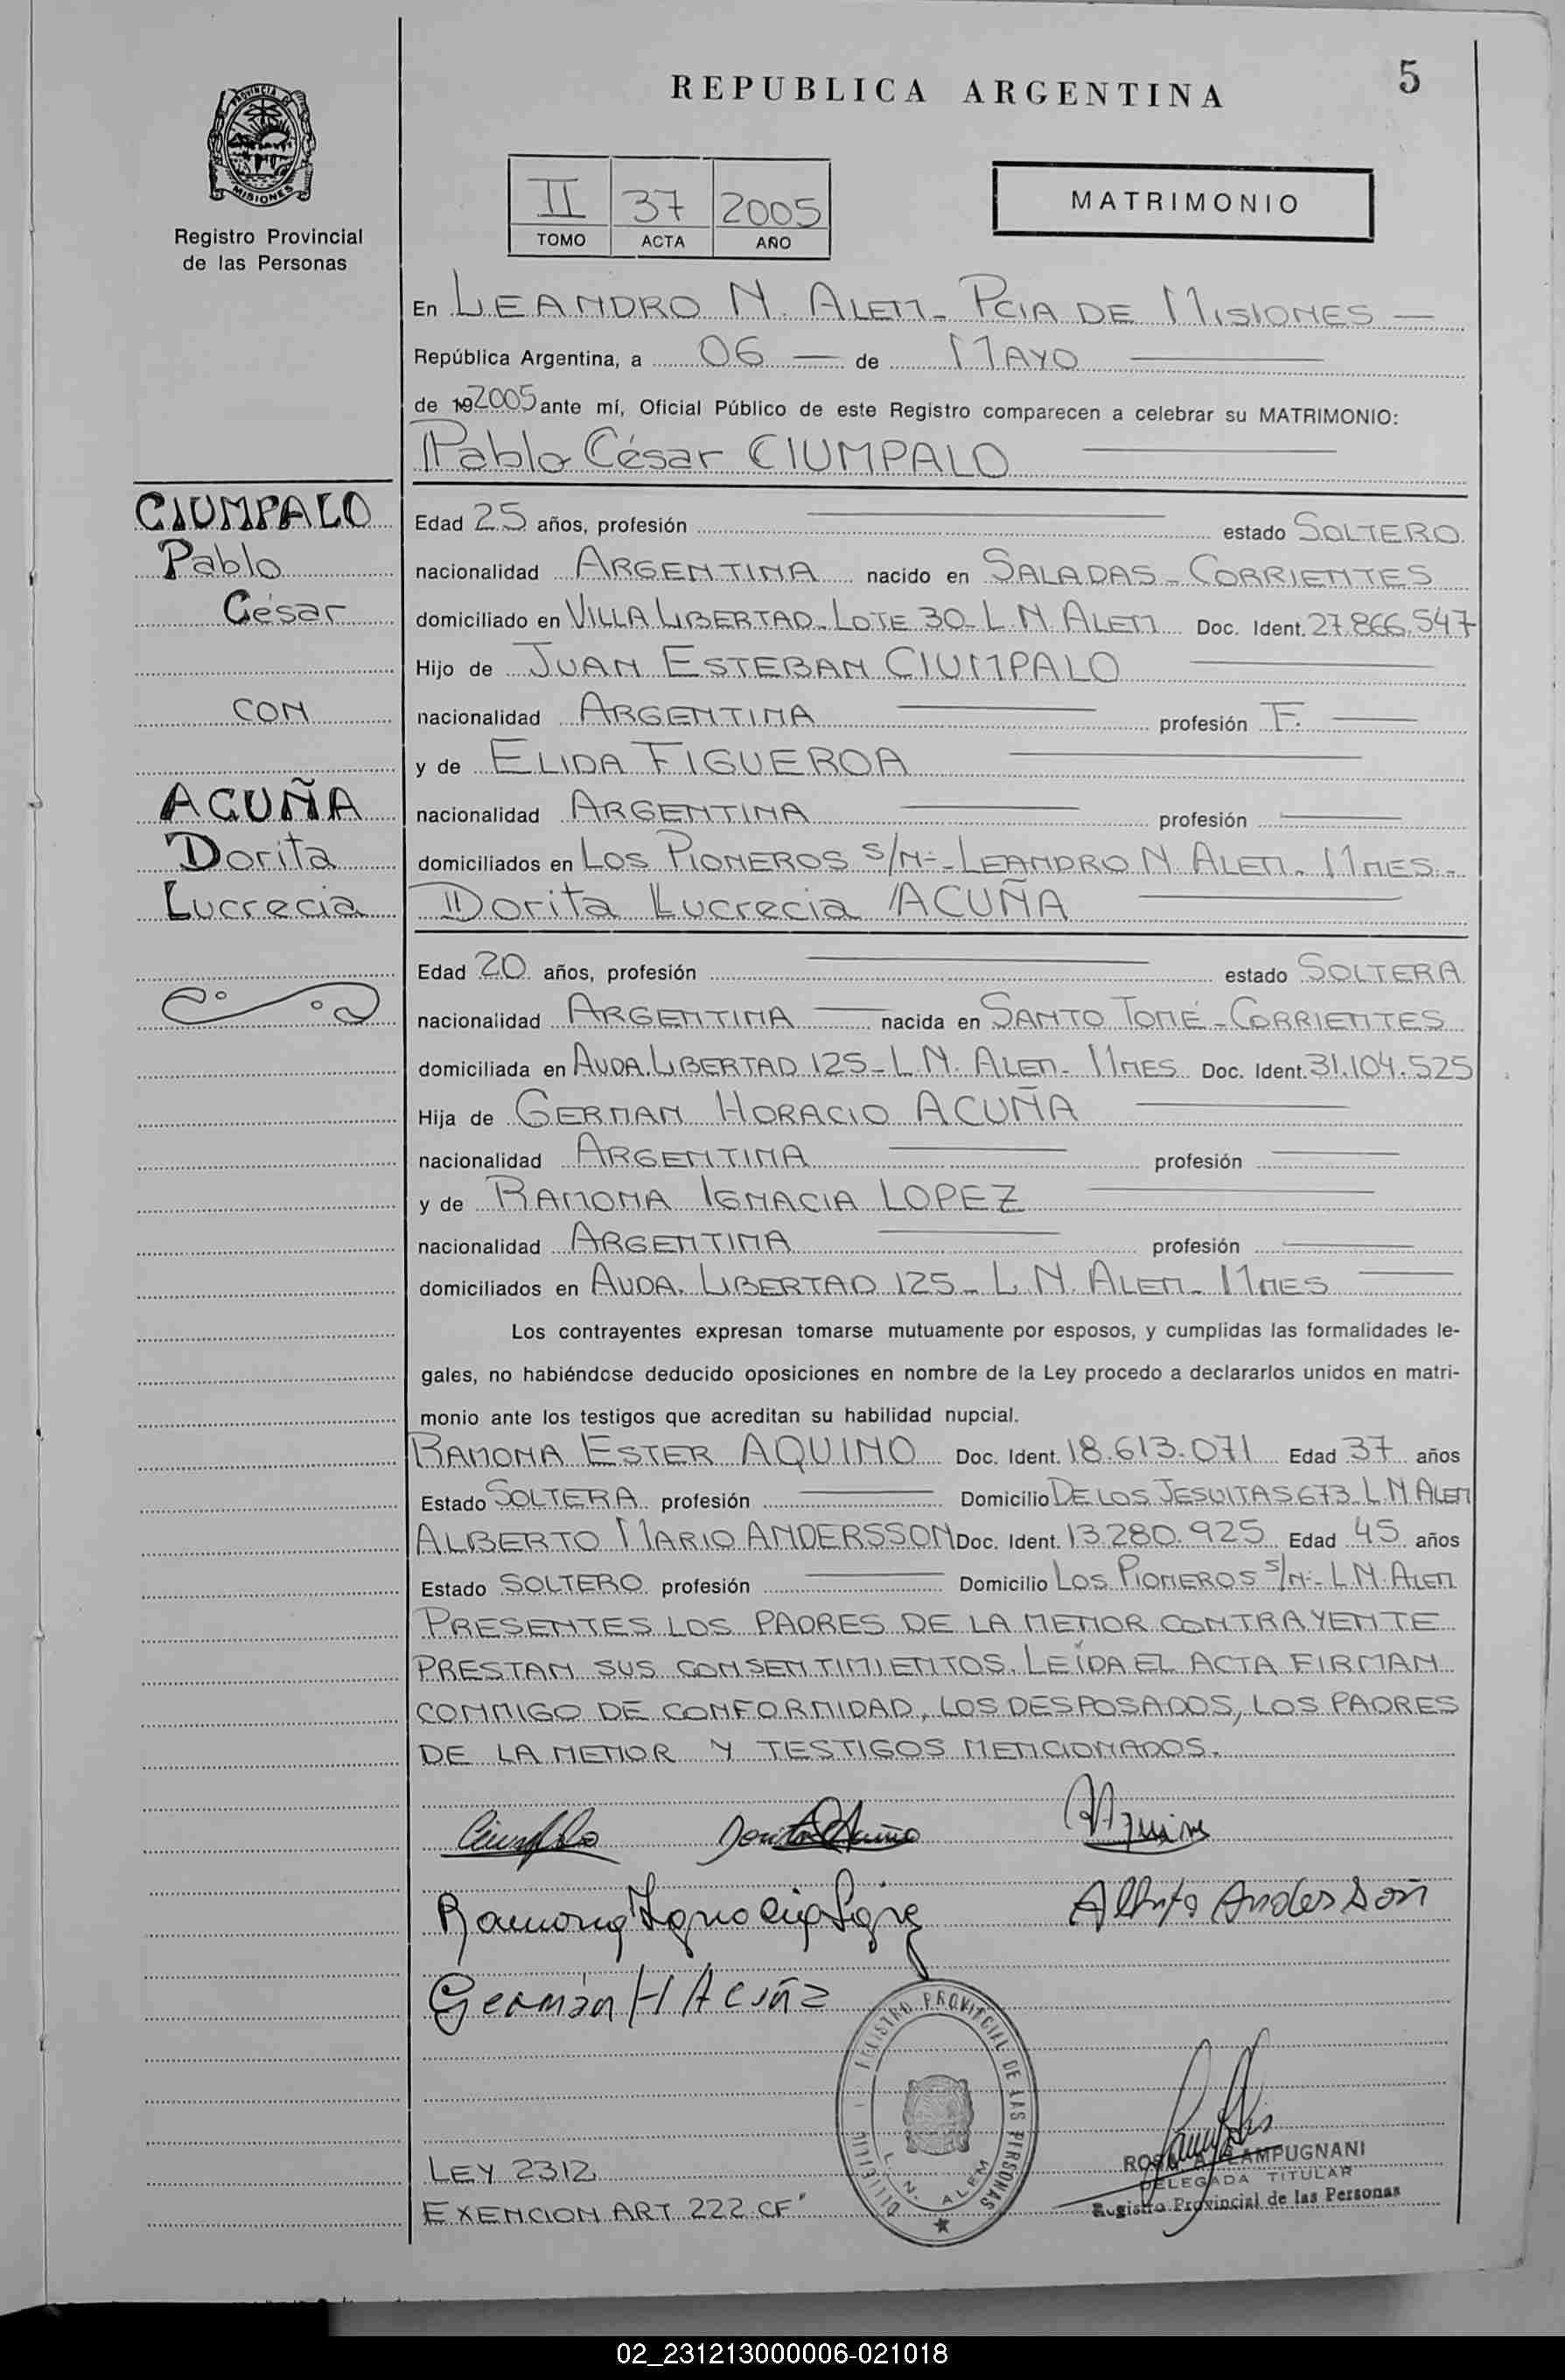 REPUBLICA ARGENTINA
5
PROVINCIA DE MISIONES
Registro Provincial
de las Personas
II 37 2005
TOMO ACTA AÑO
MATRIMONIO
En LEANDRO N. ALEM - PCIA DE MISIONES —
República Argentina, a 06 — de MAYO
de 192005 ante mí, Oficial Público de este Registro comparecen a celebrar su MATRIMONIO:
Pablo César CIUMPALO
CIUMPALO
Pablo
César
CON
ACUÑA
Dorita
Lucrecia
Edad 25 años, profesión — estado SOLTERO
nacionalidad ARGENTINA nacido en SALADAS - CORRIENTES
domiciliado en VILLA LIBERTAD - LOTE 30 - L.N ALEM Doc. Ident. 27.866.547
Hijo de JUAN ESTEBAN CIUMPALO
nacionalidad ARGENTINA — profesión F. —
y de ELIDA FIGUEROA
nacionalidad ARGENTINA — profesión —
domiciliados en LOS PIONEROS S/N - LEANDRO N. ALEM - MNES -
Dorita Lucrecia ACUÑA
Edad 20 años, profesión — estado SOLTERA
nacionalidad ARGENTINA — nacida en SANTO TOMÉ - CORRIENTES
domiciliada en AVDA. LIBERTAD 125 - L.N. ALEM - MNES Doc. Ident. 31.104.525
Hija de GERMAN HORACIO ACUÑA
nacionalidad ARGENTINA — profesión —
y de RAMONA IGNACIA LOPEZ
nacionalidad ARGENTINA — profesión —
domiciliados en AVDA. LIBERTAD 125 - L.N. ALEM - MNES
Los contrayentes expresan tomarse mutuamente por esposos, y cumplidas las formalidades le-
gales, no habiéndose deducido oposiciones en nombre de la Ley procedo a declararlos unidos en matri-
monio ante los testigos que acreditan su habilidad nupcial.
RAMONA ESTER AQUINO Doc. Ident. 18.613.071 Edad 37 años
Estado SOLTERA profesión — Domicilio DE LOS JESUITAS 673 - L.N ALEM
ALBERTO MARIO ANDERSSON Doc. Ident. 13.280.925 Edad 45 años
Estado SOLTERO profesión — Domicilio LOS PIONEROS S/N - L.N. ALEM
PRESENTES LOS PADRES DE LA MENOR CONTRAYENTE
PRESTAN SUS CONSENTIMIENTOS. LEÍDA EL ACTA FIRMAN
CONMIGO DE CONFORMIDAD, LOS DESPOSADOS, LOS PADRES
DE LA MENOR Y TESTIGOS MENCIONADOS.
Ciumpalo Dorita Acuña Aquino
Ramona Ignacia Lopez Alberto Andersson
Germán H Acuña
REGISTRO PROVINCIAL DE LAS PERSONAS
L. N. ALEM
LEY 2312
EXENCION ART. 222 CF
LAMPUGNANI
DELEGADA TITULAR
Registro Provincial de las Personas
02_231213000006-021018